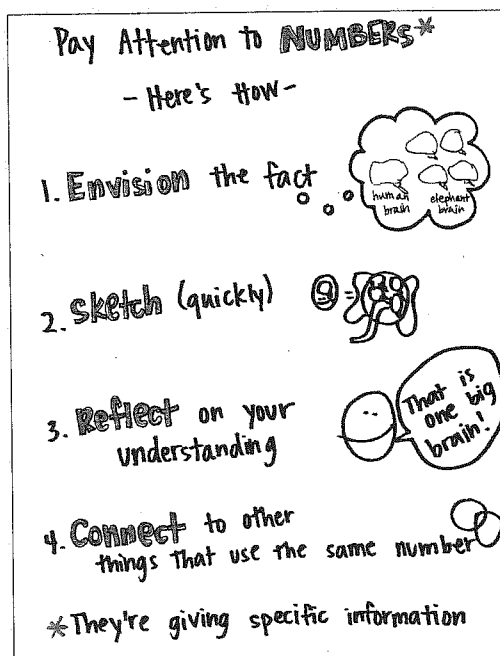 Pay Attention to NUMBERS*
- Here's How -
1. Envision the fact
human brain
elephant brain
2. Sketch (quickly)
3. Reflect on your
understanding
That is
one big
brain!
4. Connect to other
things that use the same number
*They're giving specific information